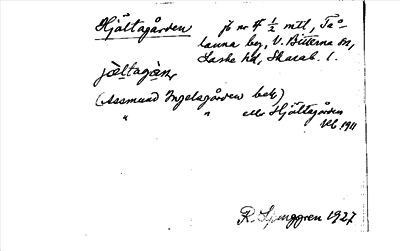 Hjältagården jb nr 4 1/2 mtl, Tå-
lanna beg, V. Bitterna sn,
Laske hd, Skarab. l.
jæltagàɳ
(Assmund Ingelsgården bek)
" " eller Hjältagården
1911
R. Ljunggren 1927